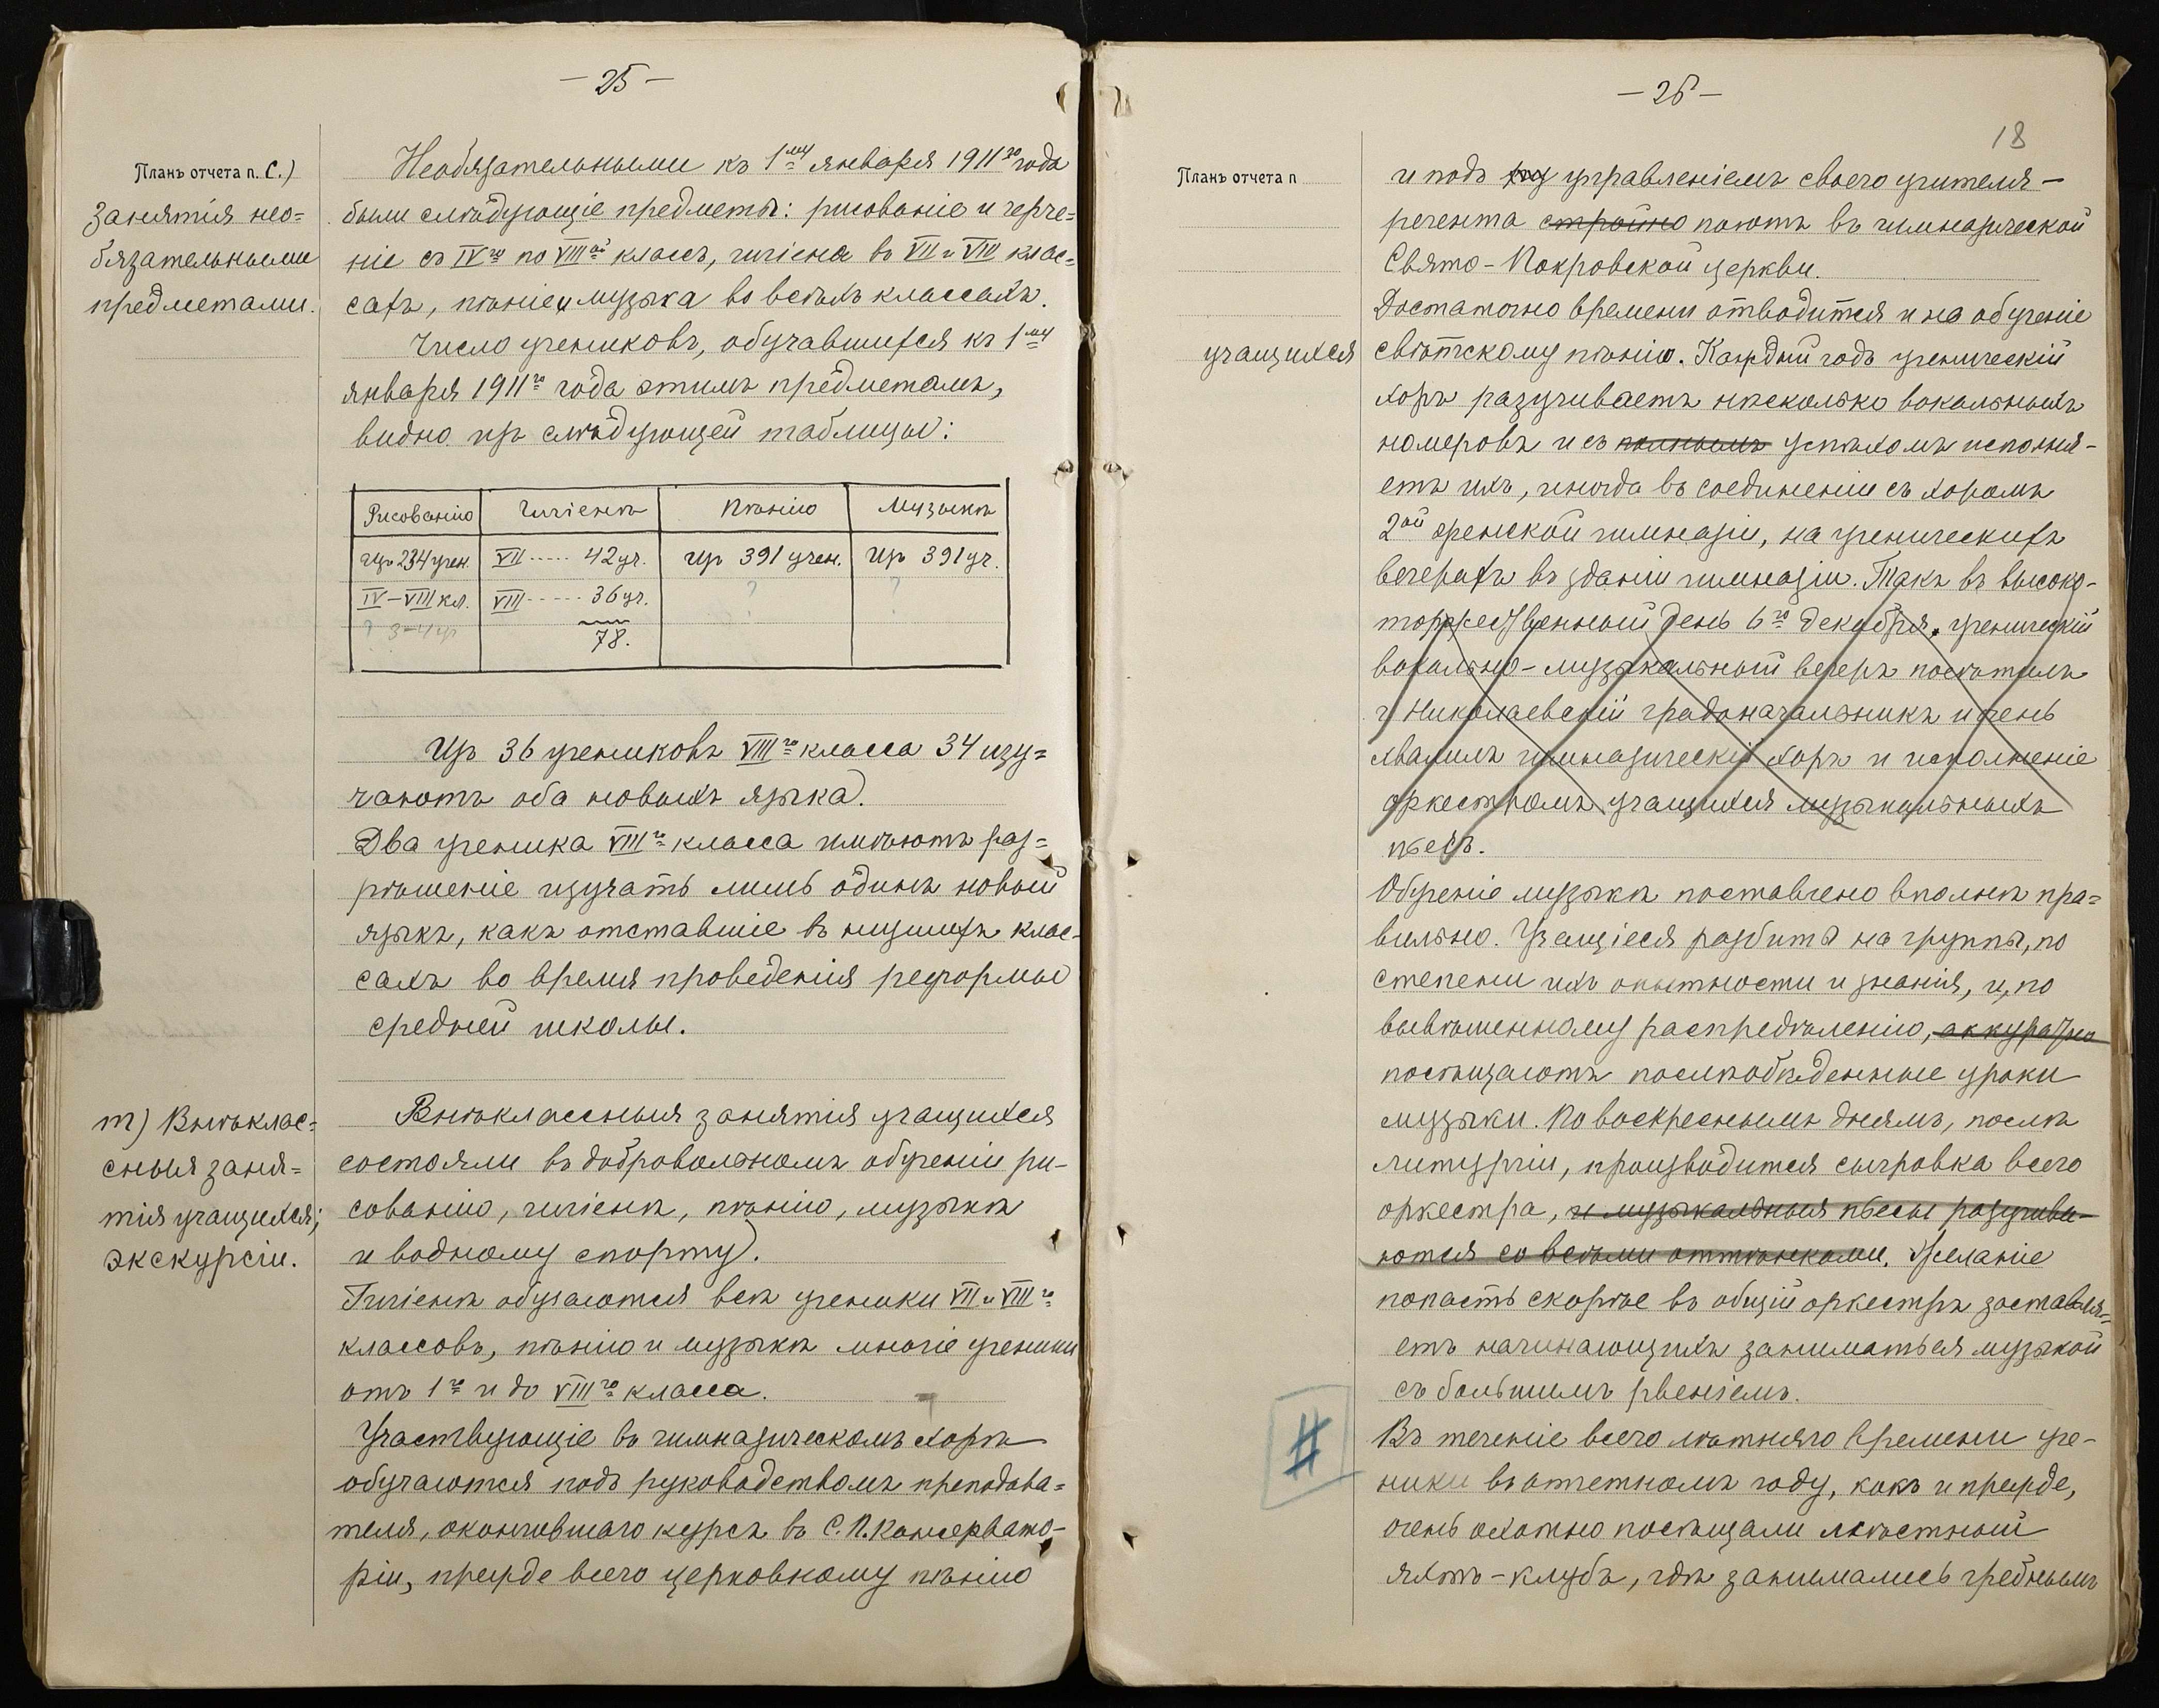 — 25 —
Планъ отчета п. С.)
Занятія нео=
бязательными
предметами.
Необязательными къ 1му января 1911го года
были слѣдующіе предметы: рисованіе и черче=
ніе съ IVго по VIIIой классъ, гигіена въ VII и VIII клас=
сахъ, пѣніе и музыка во всѣхъ классахъ.
Число учениковъ, обучавшихся къ 1му
января 1911го года этимъ предметамъ,
видно изъ слѣдующей таблицы:
Рисованію Гигіенѣ Пѣнію Музыкѣ
Изъ 234 учен. VII ..... 42 уч. Изъ 391 учен. Изъ 391 уч.
IV–VIII кл. VIII ..... 36 уч. ? ?
? 3–4 ур
78.
Изъ 36 учениковъ VIIIго класса 34 изу=
чаютъ оба новыхъ языка.
Два ученика VIIIго класса имѣютъ раз=
рѣшеніе изучать лишь одинъ новый
языкъ, какъ отставшіе въ низшихъ клас-
сахъ во время проведенія реформы
средней школы.
т) Внѣклас=
сныя заня=
тія учащихся;
экскурсіи.
Внѣклассныя занятія учащихся
состояли въ добровольномъ обученіи ри-
сованію, гигіенѣ, пѣнію, музыкѣ
и водному спорту.
Гигіенѣ обучаются всѣ ученики VII и VIIIго
классовъ, пѣнію и музыкѣ многіе ученики
отъ 1го и до VIIIго класса.
Участвующіе въ гимназическомъ хорѣ
обучаются подъ руководствомъ преподава=
теля, окончившаго курсъ въ С.П. Консервато-
ріи, прежде всего церковному пѣнію
— 26 —
18
Планъ отчета п
и подъ управленіемъ своего учителя–
регента стройно поютъ въ гимназической
Свято-Покровской церкви.
Достаточно времени отводится и на обученіе
учащихся
свѣтскому пѣнію. Каждый годъ ученическій
хоръ разучиваетъ нѣсколько вокальныхъ
номеровъ и съ полнымъ успѣхомъ исполня-
етъ ихъ, иногда въ соединеніи съ хоромъ
2ой женской гимназіи, на ученическихъ
вечерахъ въ зданіи гимназіи. Такъ въ высоко-
торжественный день 6го декабря, ученическій
вокально-музыкальный вечеръ посѣтилъ
г. Николаевскій градоначальникъ и очень
хвалилъ гимназическій хоръ и исполненіе
оркестромъ учащихся музыкальныхъ
пьесъ.
Обученіе музыкѣ поставлено вполнѣ пра=
вильно. Учащіеся разбиты на группы, по
степени ихъ опытности и знанія, и, по
вывѣшенному распредѣленію, аккуратно
посѣщаютъ послѣобѣденные уроки
музыки. По воскреснымъ днямъ, послѣ
литургіи, производится сыгровка всего
оркестра, и музыкальныя пьесы разучива-
ются со всѣми оттѣнками. Желаніе
попасть скорѣе въ общій оркестръ заставля=
етъ начинающихъ заниматься музыкой
съ большимъ рвеніемъ.
#
Въ теченіе всего лѣтняго времени уче-
ники въ отчетномъ году, какъ и прежде,
очень охотно посѣщали мѣстный
яхтъ-клубъ, гдѣ занимались гребнымъ